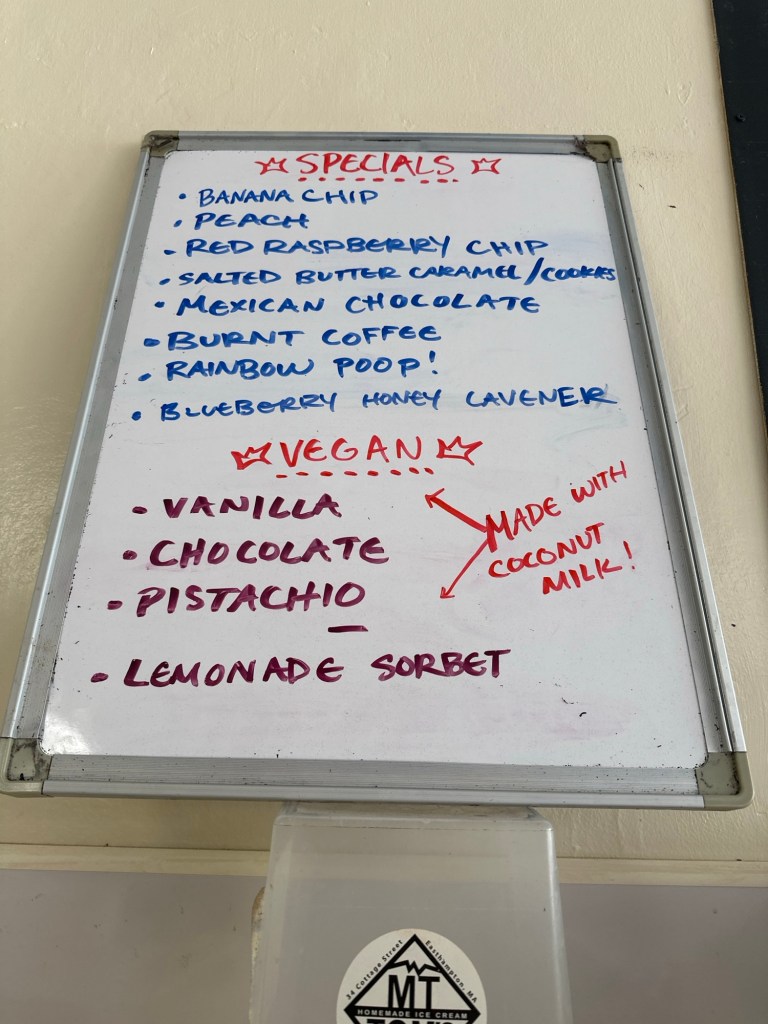 SPECIALS
• BANANA CHIP
• PEACH
• RED RASPBERRY CHIP
• SALTED BUTTER CARAMEL/COOKIES
• MEXICAN CHOCOLATE
• BURNT COFFEE
• RAINBOW POOP!
• BLUEBERRY HONEY LAVENER
VEGAN
• VANILLA
• CHOCOLATE
• PISTACHIO
MADE WITH
COCONUT
MILK!
• LEMONADE SORBET
34 Cottage Street Easthampton, MA
MT
HOMEMADE ICE CREAM
TOM'S